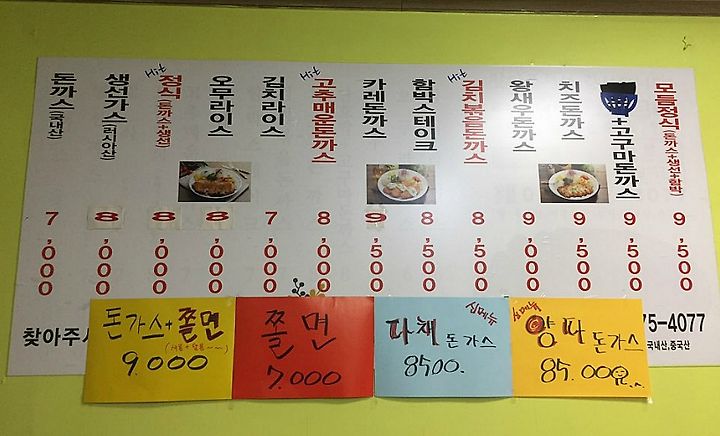 돈까스(국내산)
7,000
생선가스(러시아산)
8,000
Hit
정식(돈까스+생선)
8,000
오무라이스
8,000
김치라이스
7,000
Hit
고추매운돈까스
8,000
카레돈까스
9,500
함박스테이크
8,500
Hit
김치볶음돈까스
8,500
왕새우돈까스
9,500
치즈돈까스
9,500
+고구마돈까스
9,500
모듬정식(돈까스+생선+함박)
9,500
찾아주
75-4077
국내산,중국산
돈가스+쫄면
9.000
쫄면
7.000
신메뉴
야채 돈가스
8500.
신메뉴
양파 돈가스
85.00